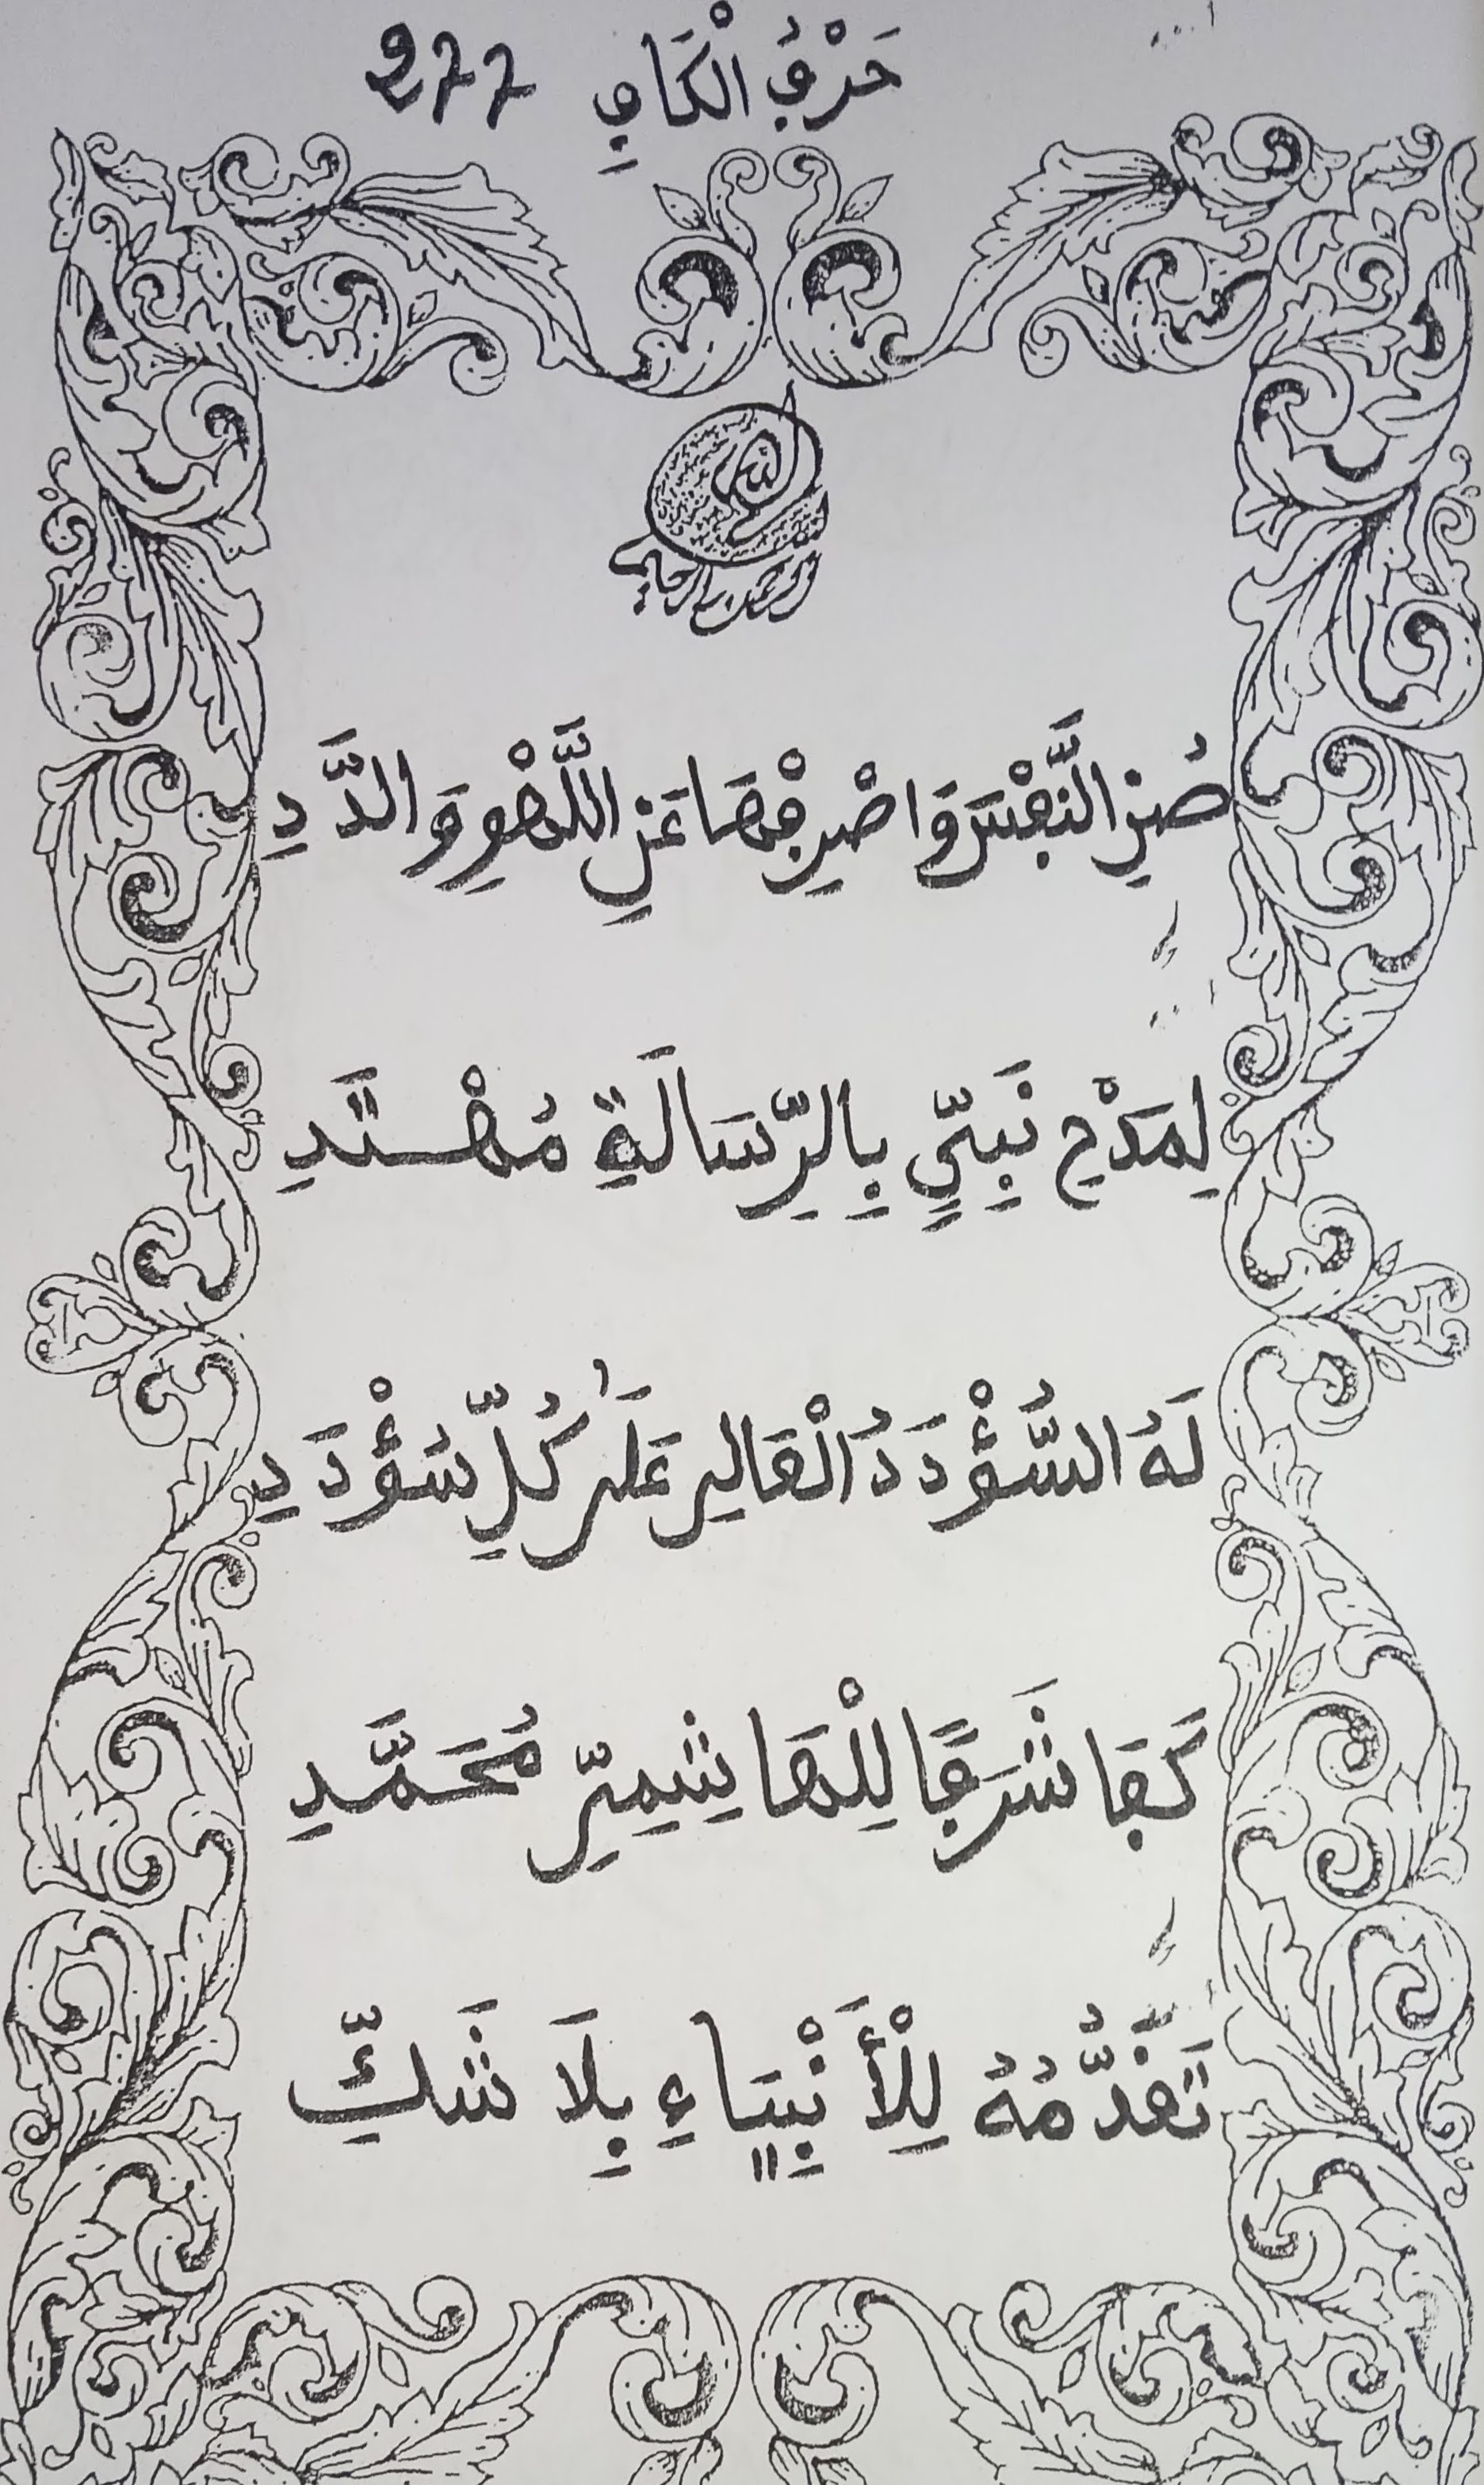 حَرْفُ الْكَافِ 277
اللَّه الرحمن الرحيم
صُنِ النَّفْسَ وَاصْرِفْهَا عَنِ اللَّهْوِ وَالدَّدِ
لِمَدْحِ نَبِيٍّ بِالرِّسَالَةِ مُهْتَدِ
لَهُ السُّؤْدَدُ الْعَالِي عَلَى كُلِّ سُؤْدَدِ
كَفَا شَرَفًا لِلْهَاشِمِيِّ مُحَمَّدِ
تَقَدُّمُهُ لِلْأَنْبِيَاءِ بِلَا شَكِّ